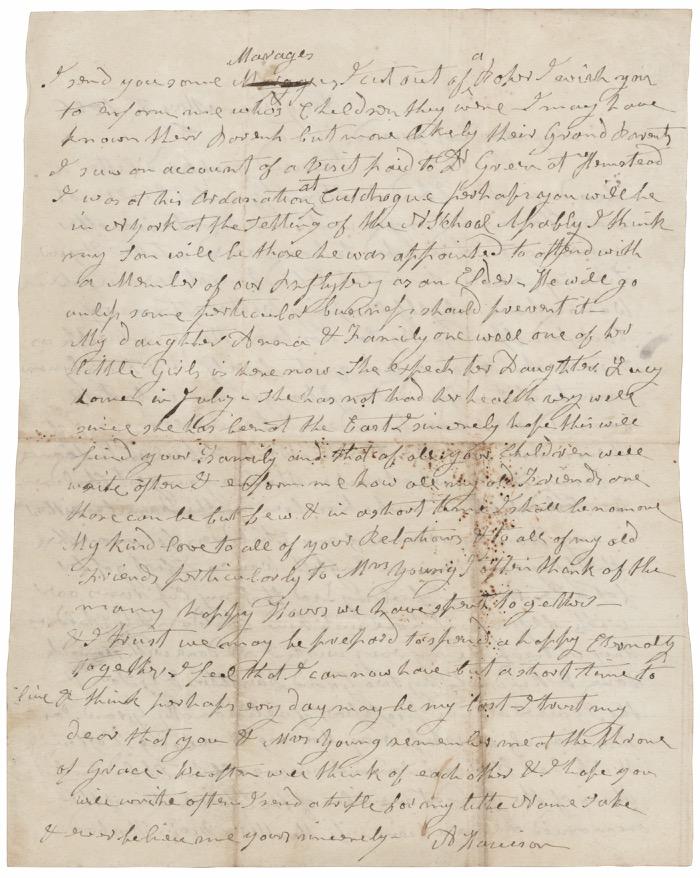 Marages a
I send you some Marages I cut out of Paper I wish you
to inform me who's Children they were I may have
known their Parents but more likely their Grand Parents
I saw an account of a Visit paid to Dr Green at Hemstead
I was at his Ordanation at Cutchogue perhaps you will be
in N York at the Setting of the N School Assembly I think
my Son will be there he was appointed to attend with
a Member of our Presbytery as an Elder - He will go
unless some perticular business should prevent it -
My daughter Anna & Family are well one of her
little Girls is here now - She expects her Daughter Lucy
home in July - She has not had her health very well
since she has been at the East I sincerely hope this will
find your Family and that of all your Children well
write often & enform me how all my old Friends are
there can be but few & in a short time I shall be no more
My kind love to all of your Relations & to all of my old
Friends perticularly to Mrs Young I often think of the
many happy Hours we have spent together -
& I trust we may be prepard to spend a happy Eternaty
together, I feel that I can now have but a short time to
live & think perhaps evry day may be my last - I trust my
dear that you & Mrs Young remember me at the throne
of Grace - We often will think of each other & I hope you
will write often I send a trifle for my little Name Sake
& ever believe me yours sincerely - A Harrison